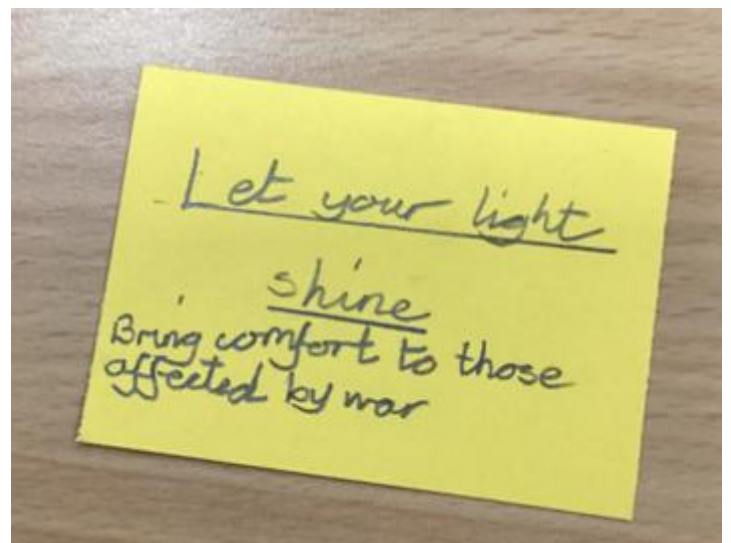 Let your light
shine
Bring comfort to those
affected by war